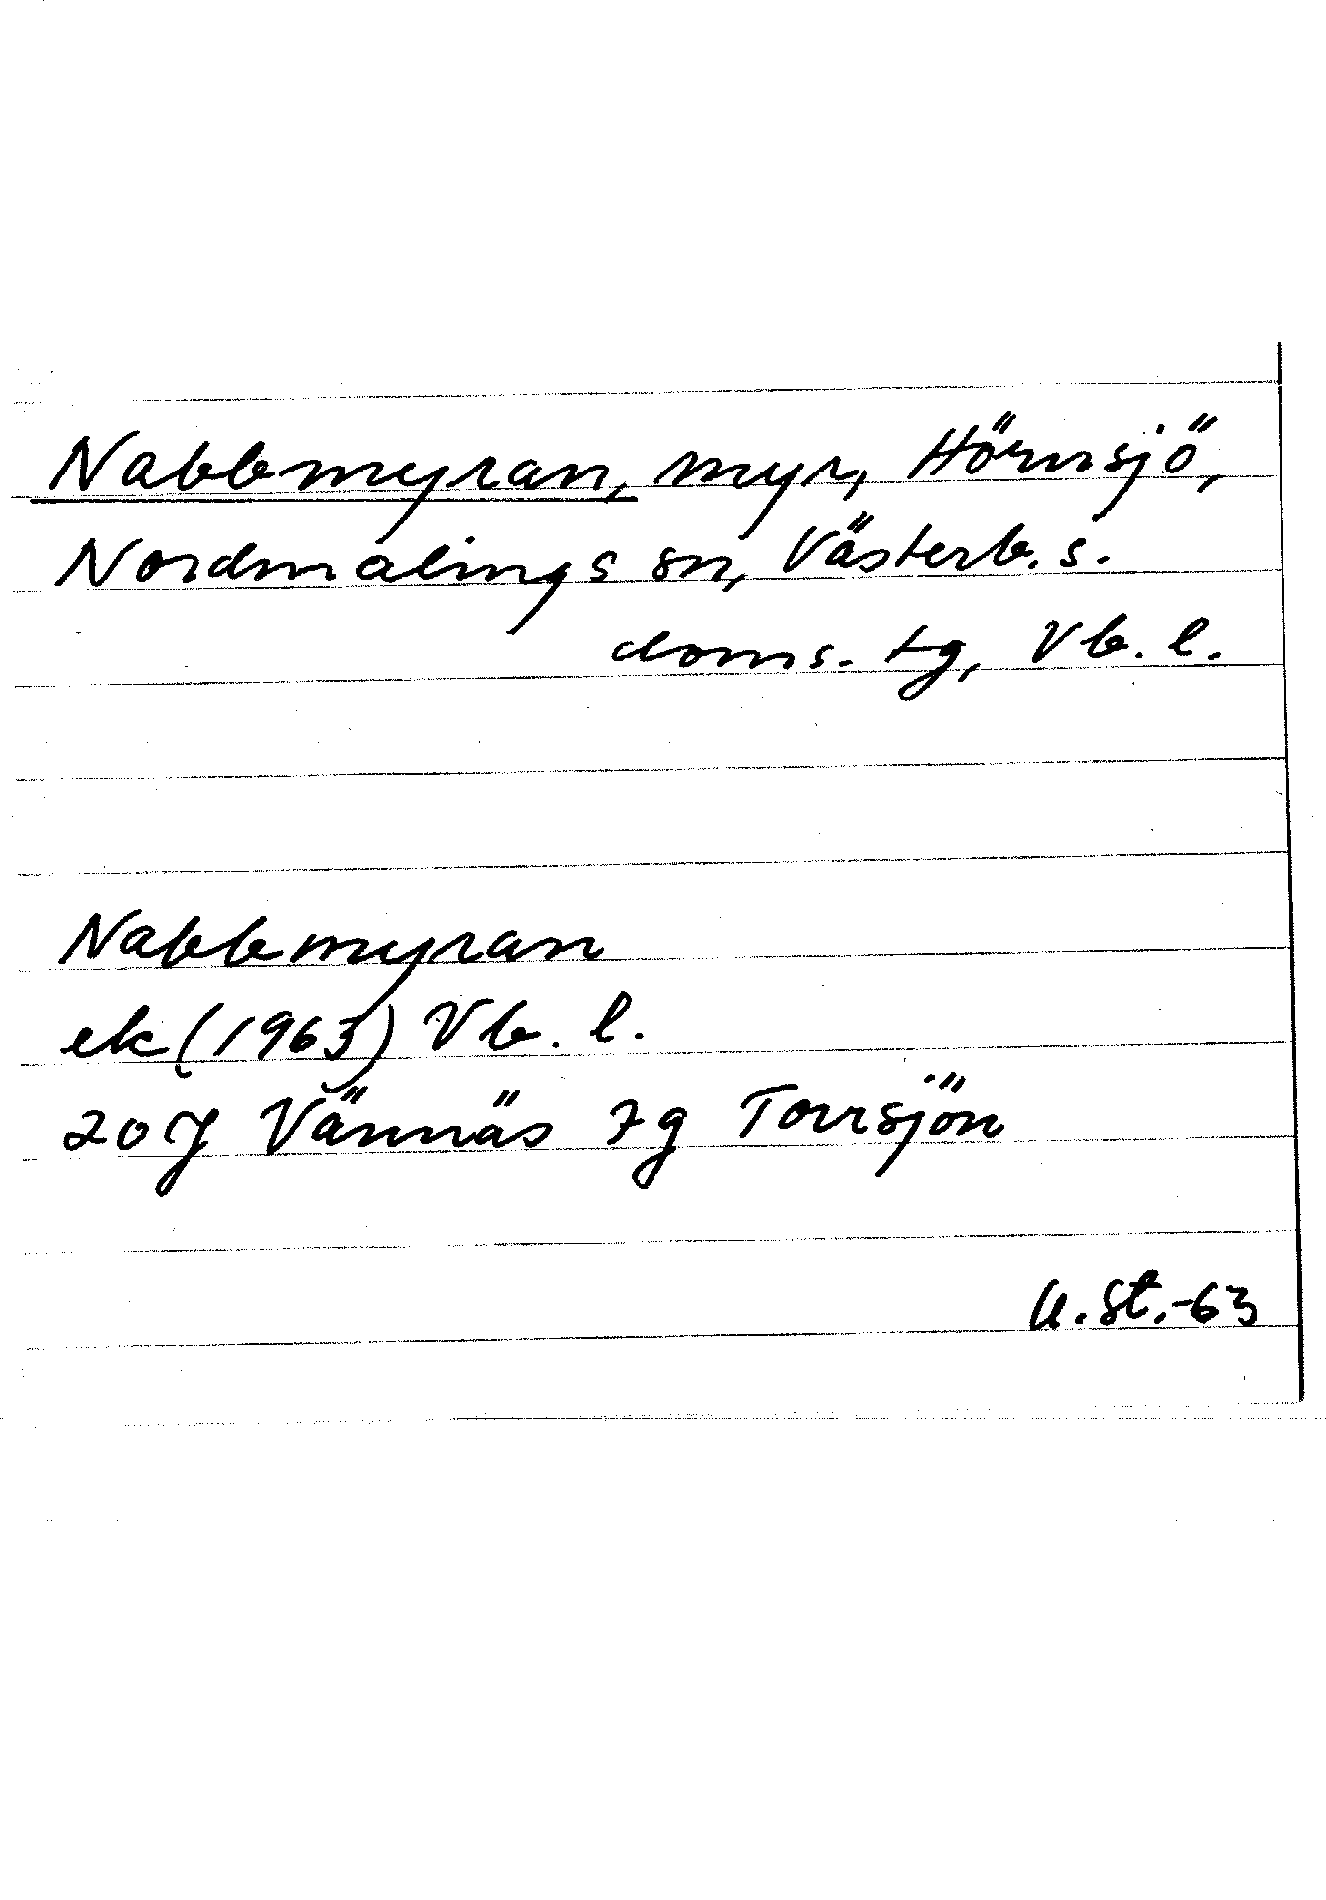 Nabbmyran, myr, Hörnsjö,
Nordmalings sn, Västerb. s.
doms. tg, Vb. l.
Nabbmyran
ek (1963) Vb. l.
20J Vännäs 7g Torrsjön
U. St. -63